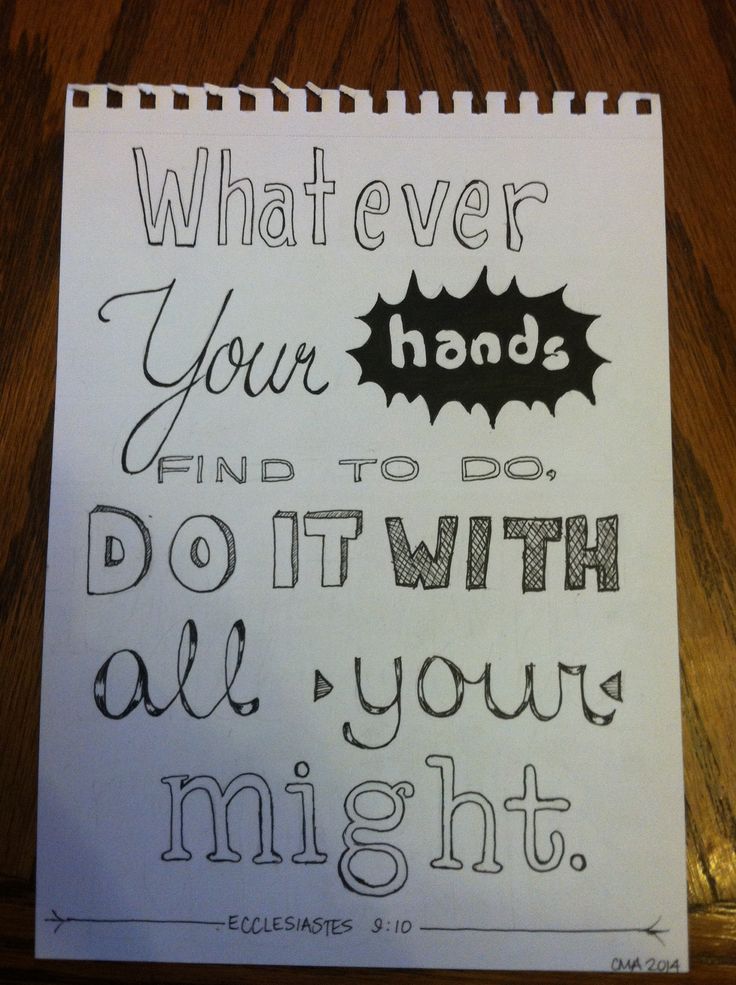 Whatever
Your hands
FIND TO DO,
DO IT WITH
all your
might.
ECCLESIASTES 9:10
CMA 2014